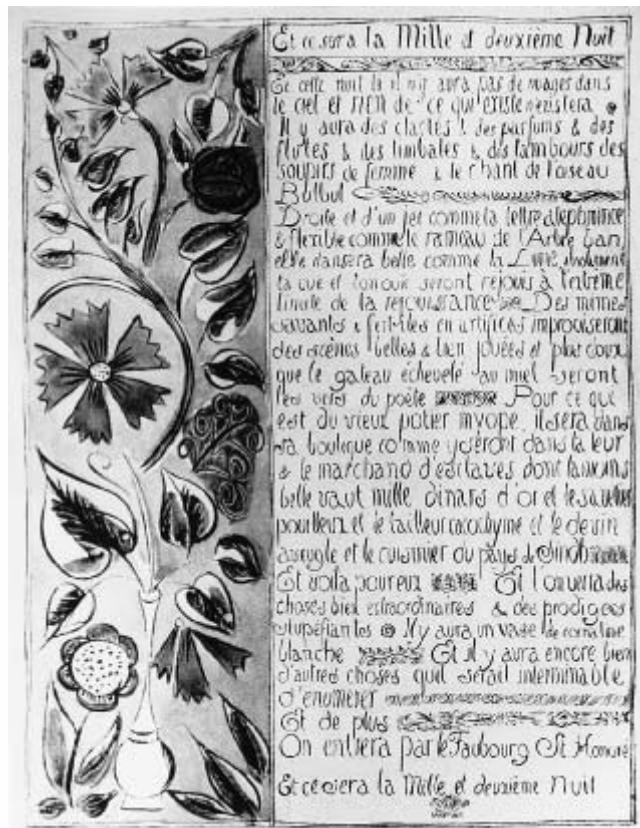 Et ce sera la Mille et deuxième Nuit
Et cette nuit là il n'y aura pas de nuages dans
le ciel et rien de ce qui existe n'existera
Il y aura des clartés & des parfums & des
flutes & des timbales & des tambours des
soupirs de femme & le chant de l'oiseau
Bulbul
Droite et d'un jet comme la lettre aleph mince
& flexible comme le rameau de l'Arbre ban,
elle dansera belle comme la Lune, absolument
ta vue et ton ouie seront rejouis à l'extrême
limite de la rejouissance Des mimes
savants & fertiles en artifices improviseront
des scènes belles & bien jouées et plus doux
que le gateau échevelé au miel seront
les vers du poète Pour ce qui
est du vieux potier myope, il sera dans
sa boutique comme y seront dans la leur
& le marchand d'esclaves dont la moins
belle vaut mille dinars d'or et le savetier
pouilleux et le tailleur cacochyme et le devin
aveugle et le cuisinier du pays de Sindh
Et voila pour eux Et l'on verra des
choses bien extraordinaires & des prodiges
stupéfiantes Il y aura un vase de cornaline
blanche Et il y aura encore bien
d'autres choses quil serait interminable
d'enumérer
Et de plus
On entrera par le Faubourg St Honoré
Et ce sera la Mille et deuxième Nuit